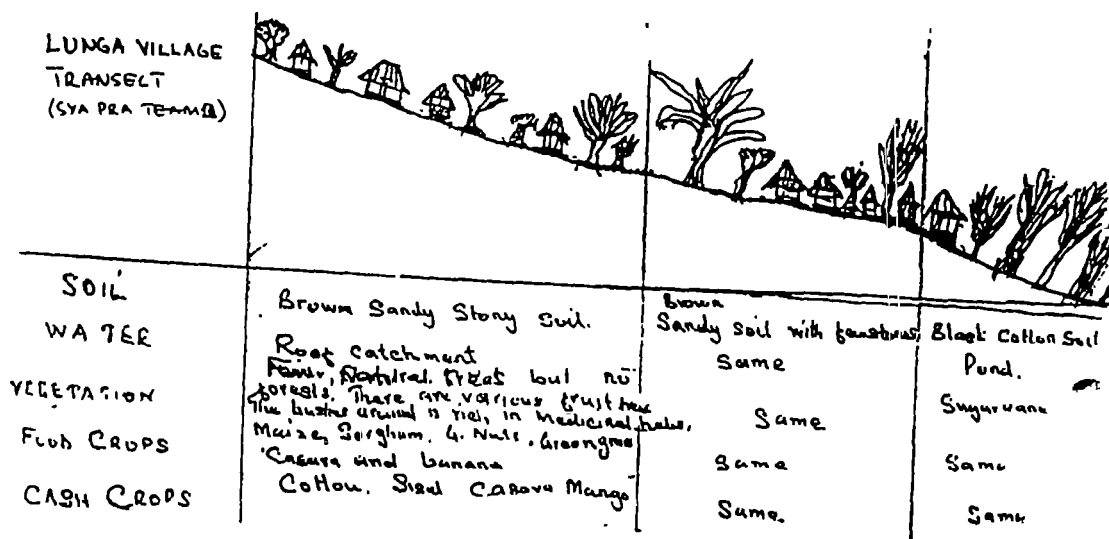 LUNGA VILLAGE
TRANSECT
(SYA PRA TEAM
SOIL
Brown Sandy Stony Soil.
Brown
Sandy soil with
Black Cotton Soil
WATER
Roof Catchment
Same
Pond.
VEGETATION
Natural trees but no
forests. There are various fruit trees
The bushes around is rich in medicinal
Same
Sugarcane
FOOD CROPS
Maize, Sorghum, G. Nuts, Greengrams
Casava and banana
Same
Same
CASH CROPS
Cotton. Sisal Casava Mango
Same.
Same